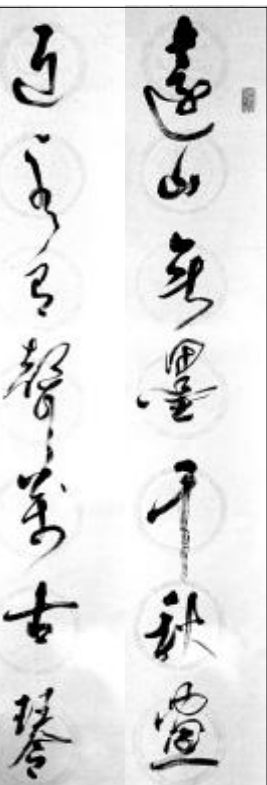 遠山無墨千秋畫
近水有聲萬古琴